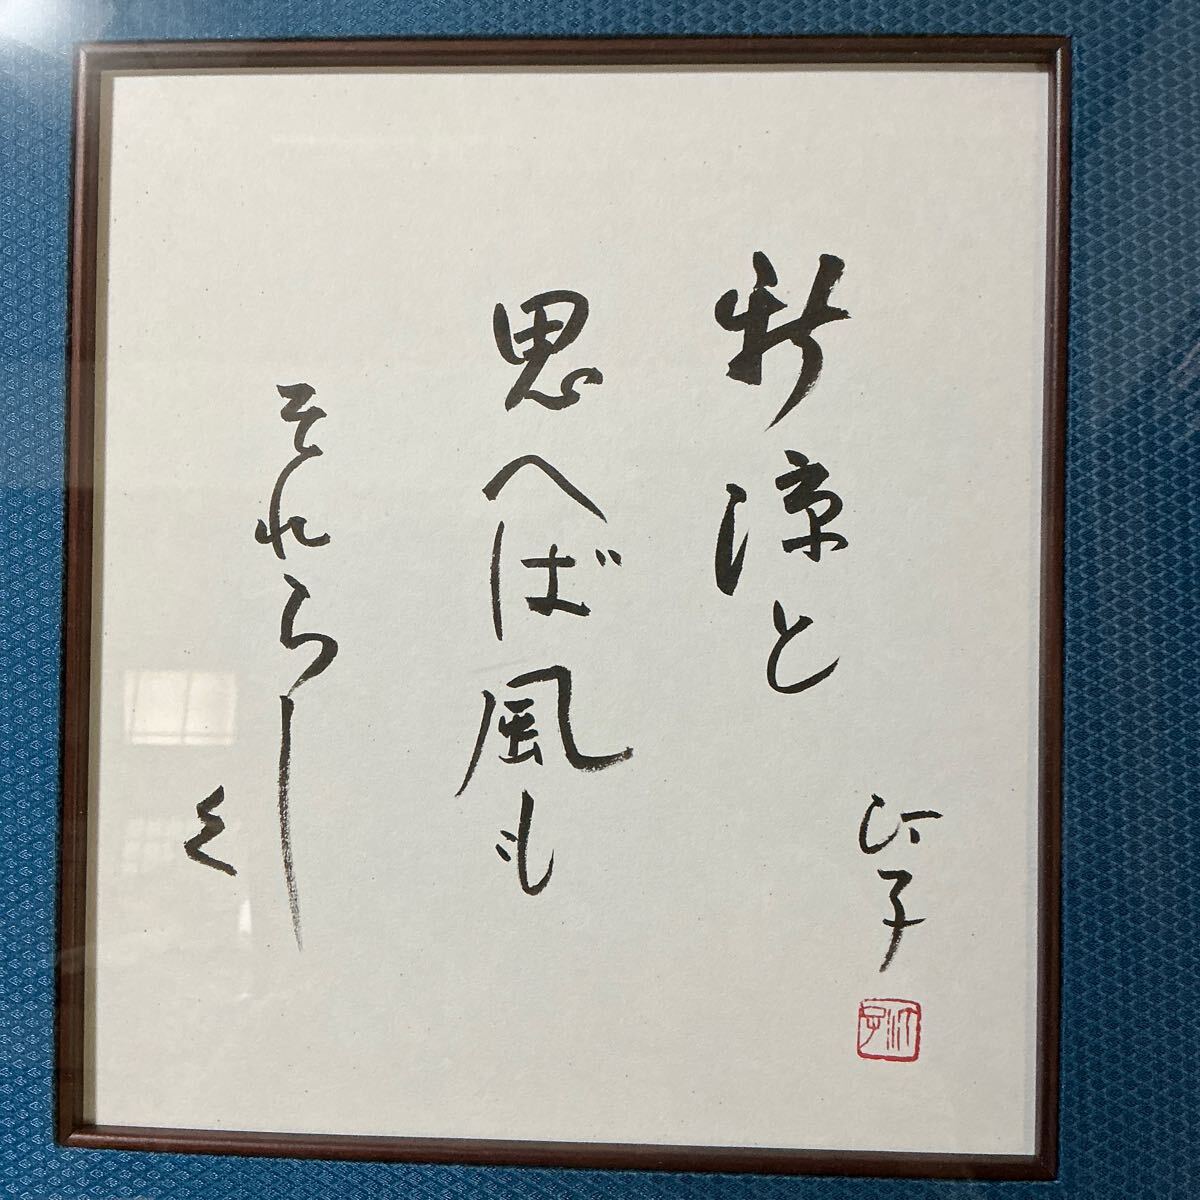 新涼と
思へば風も
それらし
く
汀子
汀子